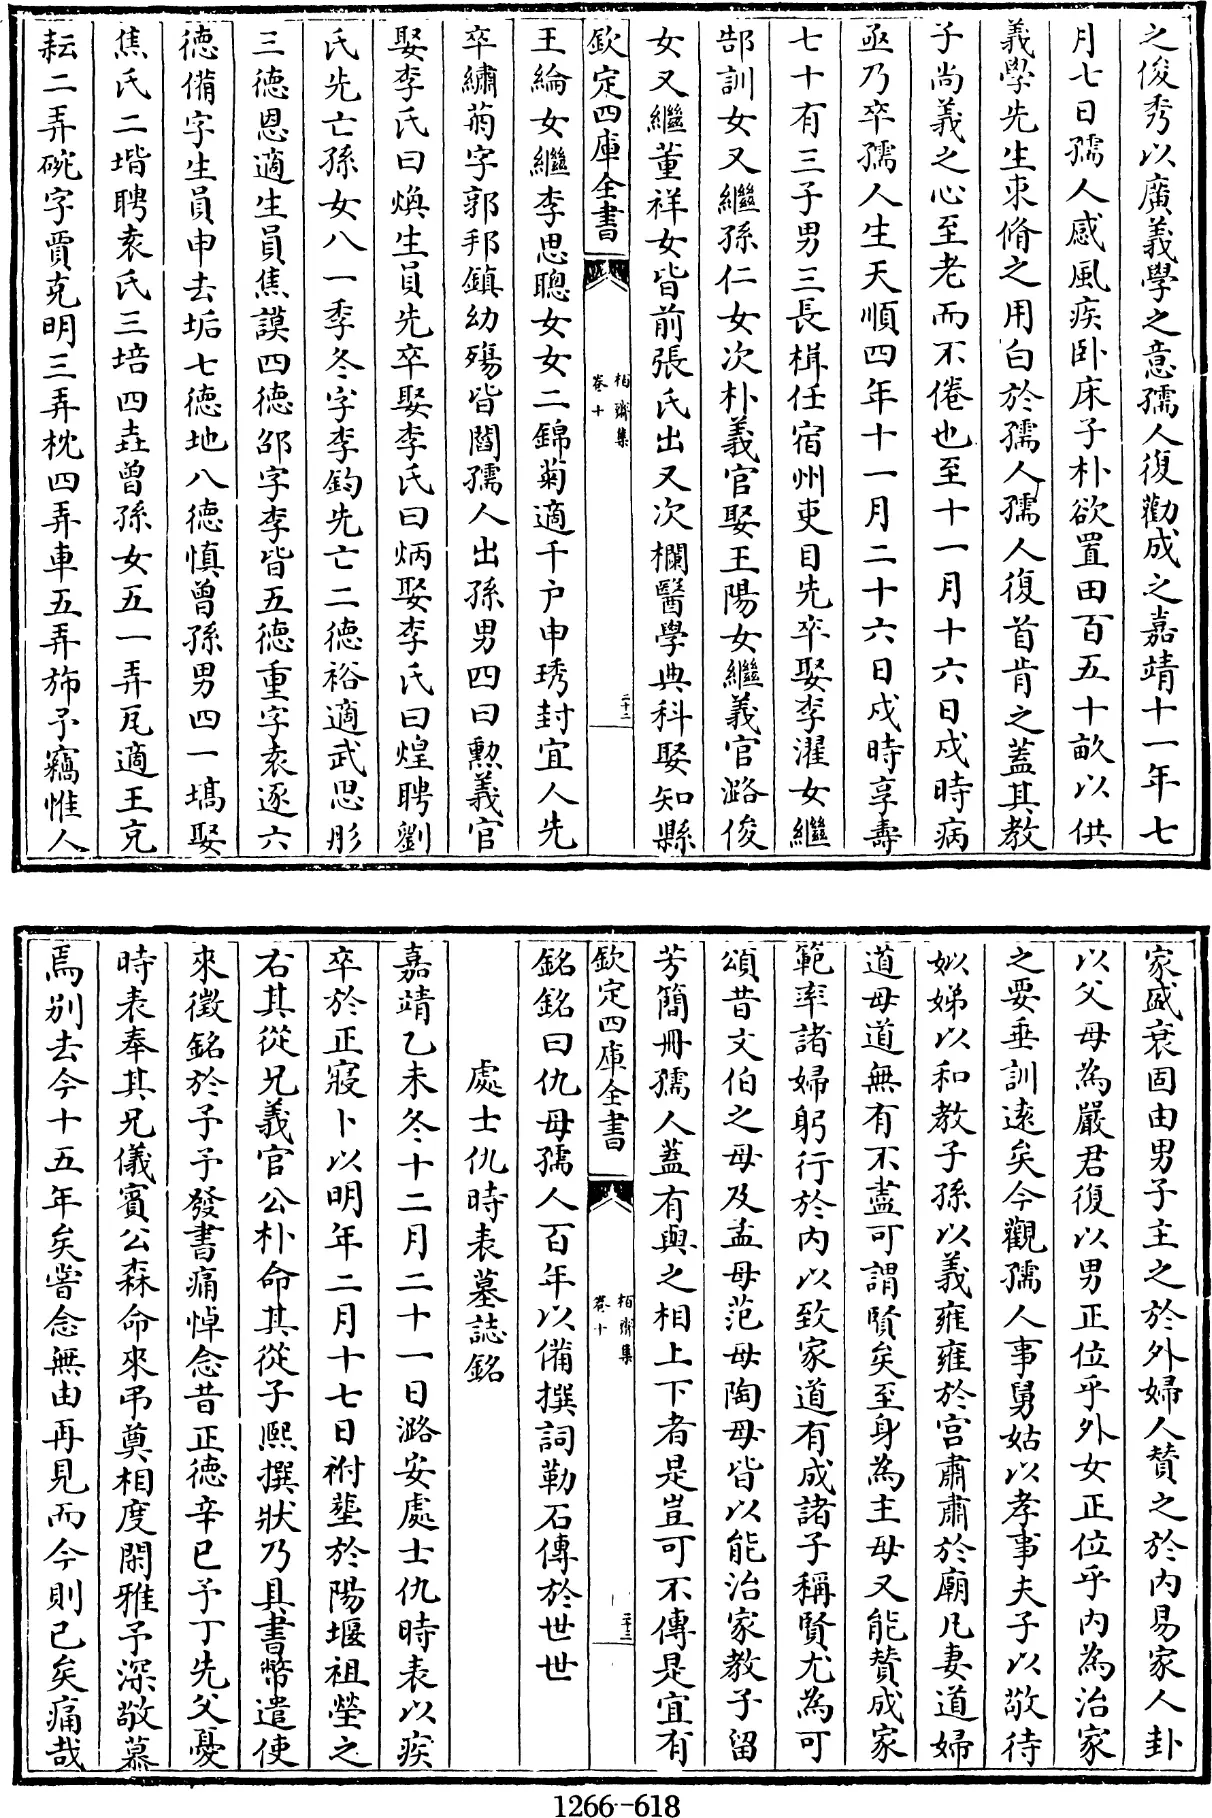 之俊秀以廣義學之意孺人復勸成之嘉靖十一年七
月七日孺人感風疾卧床子朴欲置田百五十畝以供
義學先生束脩之用白於孺人孺人復首肯之蓋其教
子尚義之心至老而不倦也至十一月十六日戌時病
亟乃卒孺人生天順四年十一月二十六日戌時享壽
七十有三子男三長楫任宿州吏目先卒娶李濯女繼
郜訓女又繼孫仁女次朴義官娶王陽女繼義官潞俊
女又繼董祥女皆前張氏出又次欄醫學典科娶知縣
欽定四庫全書
柏齋集
卷十
二十二
王綸女繼李思聰女女二錦菊適千户申琇封宜人先
卒繡菊字郭邦鎮幼殤皆閻孺人出孫男四曰勲義官
娶李氏曰煥生員先卒娶李氏曰炳娶李氏曰煌聘劉
氏先亡孫女八一季冬字李鈞先亡二徳裕適武思彤
三徳恩適生員焦謨四徳邵字李皆五徳重字袁逐六
徳備字生員申去垢七徳地八徳慎曾孫男四一塙娶
焦氏二堦聘袁氏三培四壵曾孫女五一弄瓦適王克
耘二弄碗字賈克明三弄枕四弄車五弄斾予竊惟人
家盛衰固由男子主之於外婦人賛之於内易家人卦
以父母為嚴君復以男正位乎外女正位乎内為治家
之要垂訓逺矣今觀孺人事舅姑以孝事夫子以敬待
姒娣以和教子孫以義雍雍於宫肅肅於廟凡妻道婦
道母道無有不盡可謂賢矣至身為主母又能賛成家
範率諸婦躬行於内以致家道有成諸子稱賢尤為可
頌昔文伯之母及孟母范母陶母皆以能治家教子留
芳簡冊孺人蓋有與之相上下者是豈可不傳是宜有
欽定四庫全書
柏齋集
卷十
二十三
銘銘曰仇母孺人百年以備撰詞勒石傳於世世
處士仇時表墓誌銘
嘉靖乙未冬十二月二十一日潞安處士仇時表以疾
卒於正寢卜以明年二月十七日祔塟於陽堰祖塋之
右其從兄義官公朴命其從子熙撰狀乃具書幣遣使
來徵銘於予予發書痛悼念昔正徳辛巳予丁先父憂
時表奉其兄儀賓公森命來弔奠相度閑雅予深敬慕
焉别去今十五年矣嘗念無由再見而今則已矣痛哉
1266-618